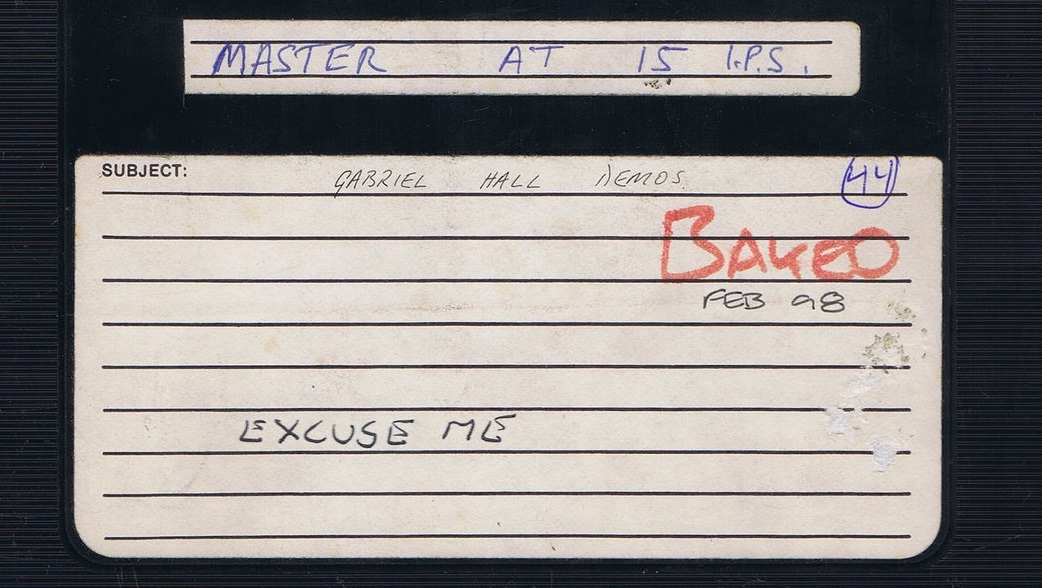 MASTER AT 15 I.P.S.
SUBJECT: GABRIEL HALL DEMOS 44
BAKED
FEB 98
EXCUSE ME